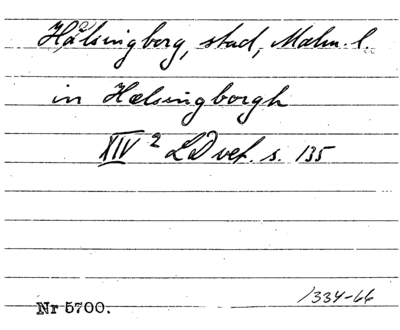 Hälsingborg, stad, Malm. l.
in Hælsingborgh
XIV 2 LD vet. s. 135
1334-66
Nr 5700.